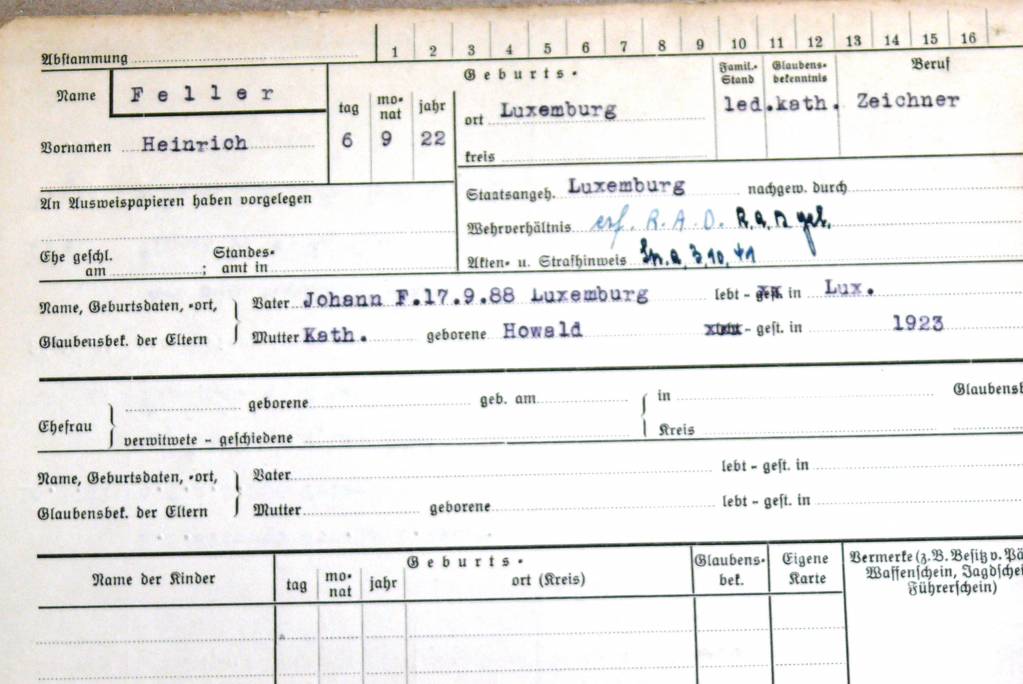 Abstammung
1 2 3 4 5 6 7 8 9 10 11 12 13 14 15 16
Name Feller
tag monat jahr
Geburts-
Famil.-Stand
Glaubensbekenntnis
Beruf
Vornamen Heinrich
6 9 22
ort Luxemburg
led. kath. Zeichner
kreis
An Ausweispapieren haben vorgelegen
Staatsangeh. Luxemburg nachgew. durch
Wehrverhältnis erf. R.A.D.
Ehe geschl. am ; Standesamt in
Akten- u. Strafhinweis 3.10.41
Name, Geburtsdaten, -ort,
Vater Johann F.17.9.88 Luxemburg lebt - in Lux.
Glaubensbek. der Eltern
Mutter Kath. geborene Howald - gest. in 1923
Ehefrau
geborene geb. am in Glaubensb
verwitwete - geschiedene Kreis
Name, Geburtsdaten, -ort,
Vater lebt - gest. in
Glaubensbek. der Eltern
Mutter geborene lebt - gest. in
Name der Kinder
Geburts-
tag monat jahr ort (Kreis)
Glaubensbek.
Eigene Karte
Vermerke (z.B. Besitz v. Pä
Waffenschein, Jagdschei
Führerschein)